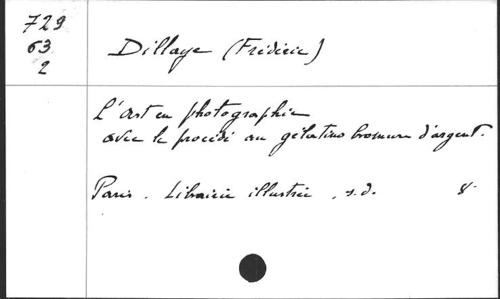 729
63
2
Dillaye (Frédéric)
L'art en photographie
avec le procédé au gélatino bromure d'argent.
Paris. Librairie illustrée, s.d. 8°